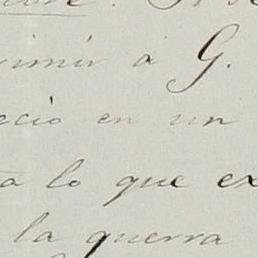 imir á G.
ecio en un
a lo que ex
la guerra